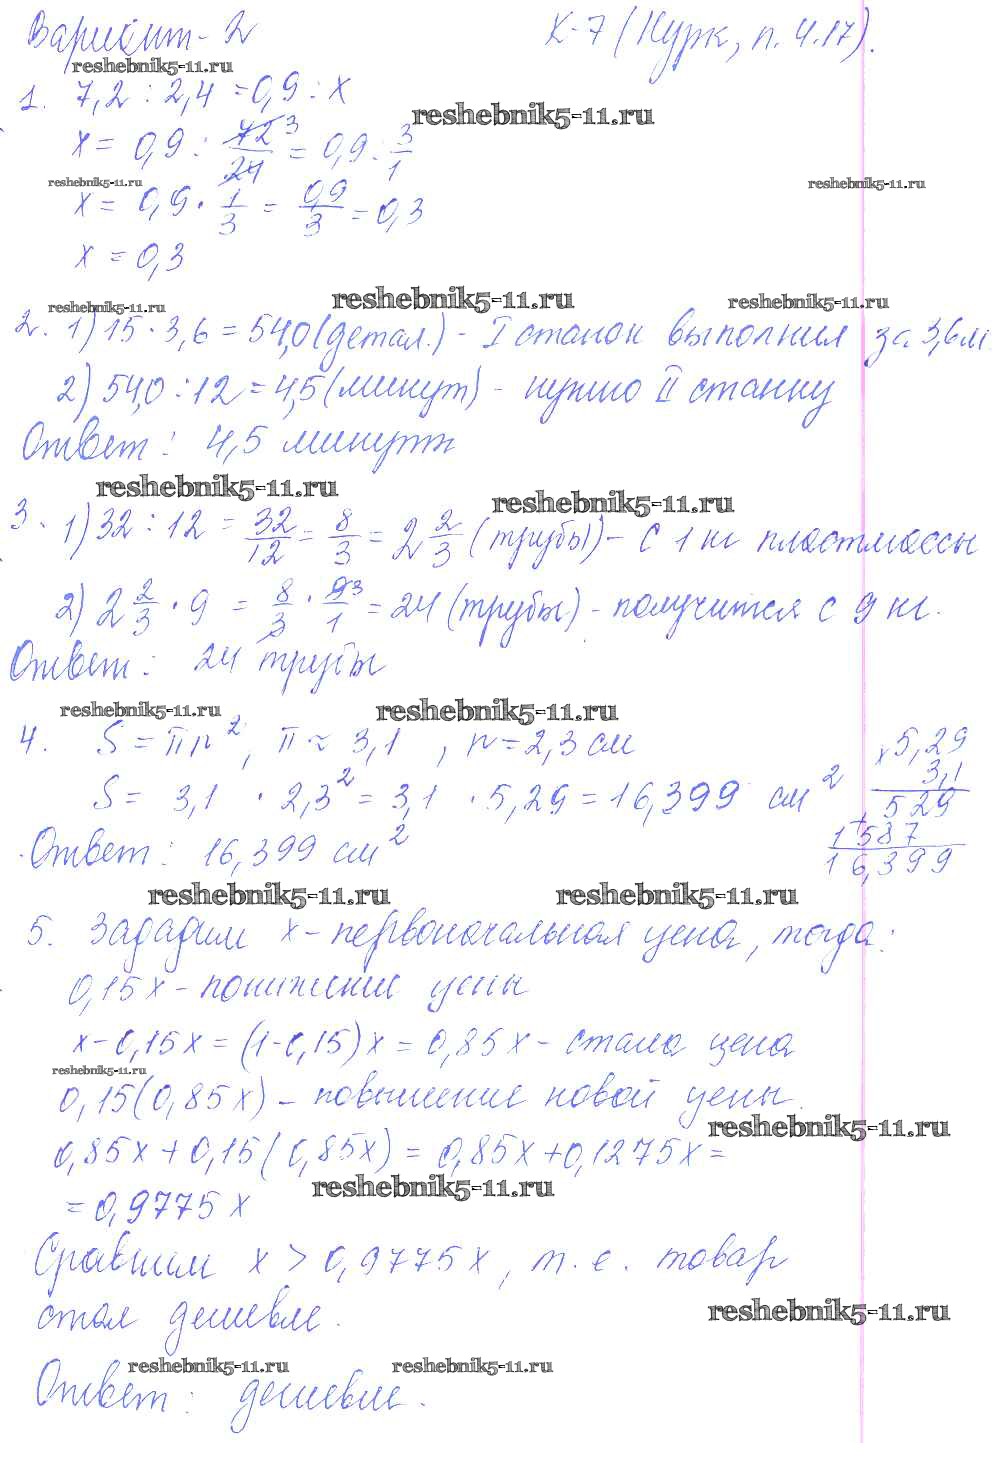 Вариант-2 К-7 (Нурк, п. 4.17).
reshebnik5-11.ru
1. 7,2 : 2,4 = 0,9 : x
reshebnik5-11.ru
x = 0,9 : 72/24 3 = 0,9 : 3/1
reshebnik5-11.ru reshebnik5-11.ru
x = 0,9 · 1/3 = 0,9/3 = 0,3
x = 0,3
reshebnik5-11.ru reshebnik5-11.ru reshebnik5-11.ru
2. 1) 15 · 3,6 = 54,0 (детал.) - I станок выполнил за 3,6м
2) 54,0 : 12 = 4,5 (минут) - нужно II станку
Ответ: 4,5 минуты
reshebnik5-11.ru reshebnik5-11.ru
3. 1) 32 : 12 = 32/12 = 8/3 = 2 2/3 (трубы) - с 1 кг пластмассы
2) 2 2/3 · 9 = 8/3 · 9/1 3 = 24 (трубы) - получится с 9 кг.
Ответ: 24 трубы
reshebnik5-11.ru reshebnik5-11.ru
4. S = πr², π ≈ 3,1, r = 2,3 см
S = 3,1 · 2,3² = 3,1 · 5,29 = 16,399 см²
× 5,29
3,1
529
+ 1587
16,399
Ответ: 16,399 см²
reshebnik5-11.ru reshebnik5-11.ru
5. Зададим x - первоначальная цена, тогда:
0,15x - понижение цены
x - 0,15x = (1 - 0,15)x = 0,85x - стала цена
reshebnik5-11.ru
0,15(0,85x) - повышение новой цены.
reshebnik5-11.ru
0,85x + 0,15(0,85x) = 0,85x + 0,1275x =
reshebnik5-11.ru
= 0,9775x
Сравним x > 0,9775x, т.е. товар
стал дешевле.
reshebnik5-11.ru
reshebnik5-11.ru reshebnik5-11.ru
Ответ: дешевле.